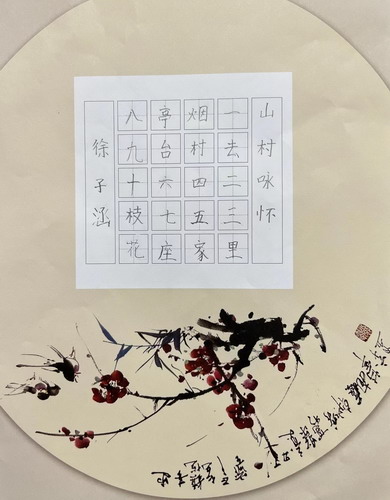 山村咏怀
一去二三里
烟村四五家
亭台六七座
八九十枝花
徐子涵